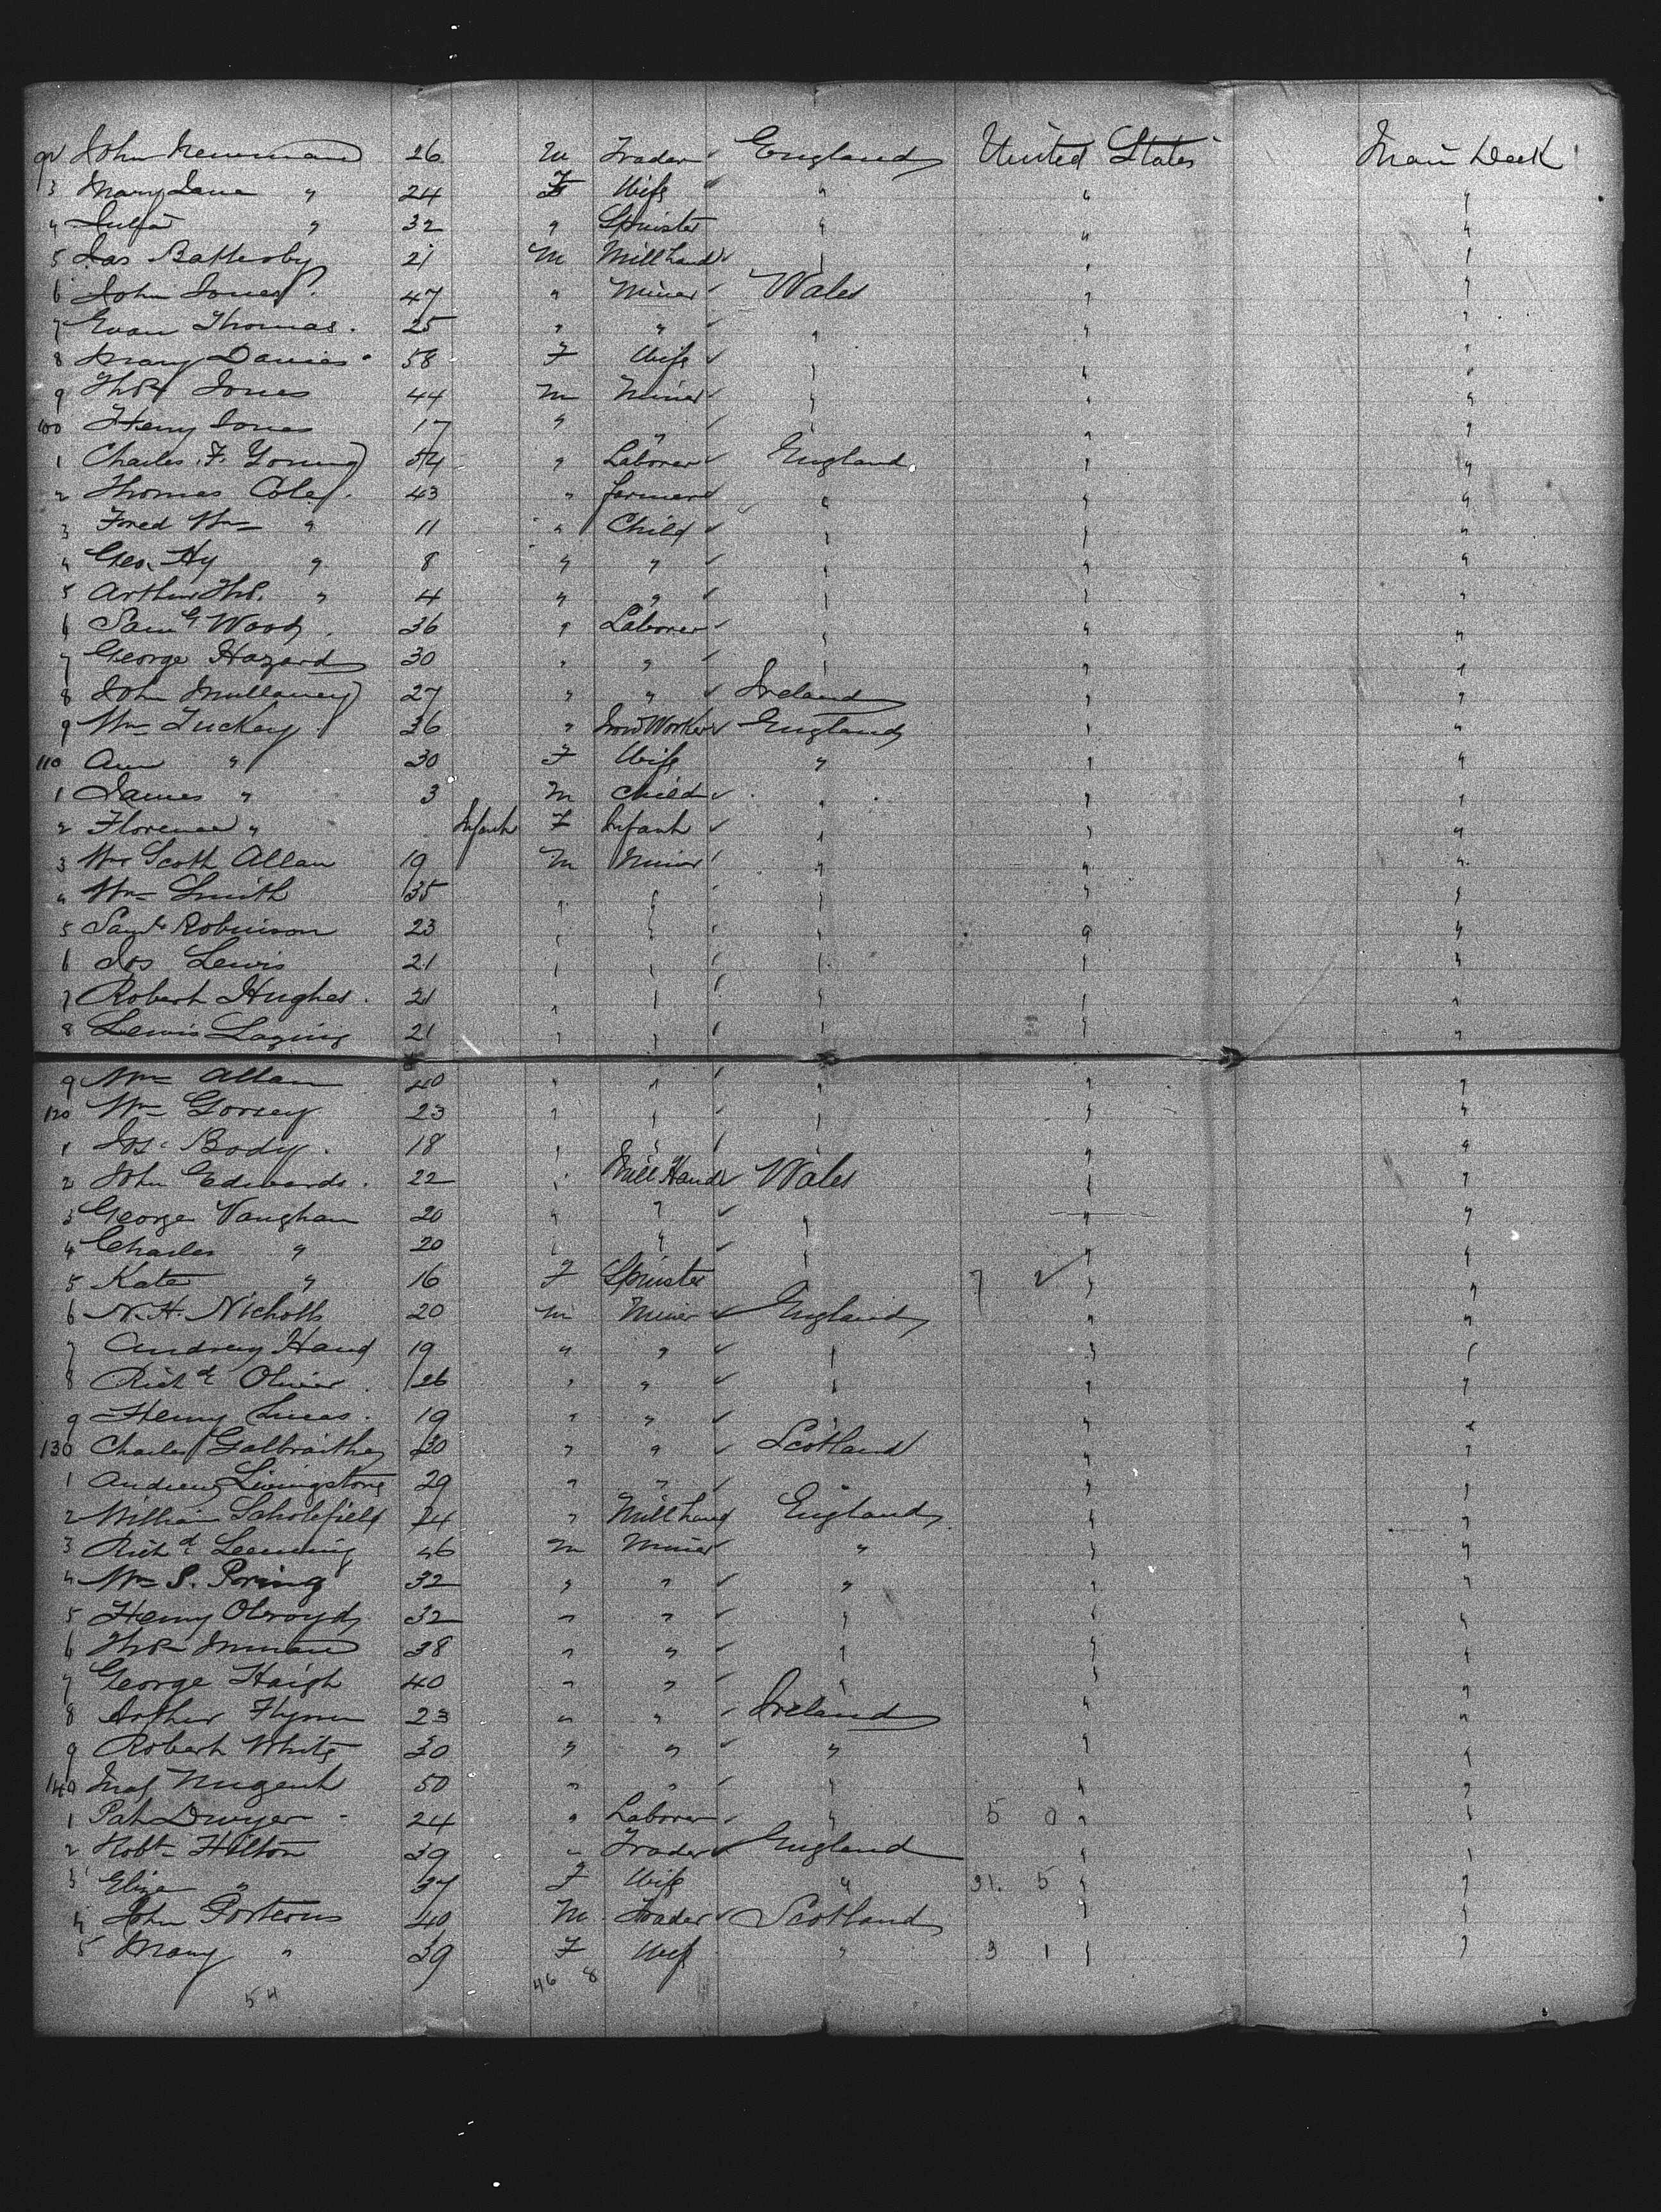 92 John Newman 26 M Trader England United States Main Deck
3 Mary Jane " 24 F Wife " " "
4 Julia " 32 " Spinster " " "
5 Jas Battersby 21 M Millhand " " "
6 John Jones 47 " Miner Wales " "
7 Evan Thomas 25 " " " " "
8 Mary Davies 58 F Wife " " "
9 Thos Jones 44 M Miner " " "
100 Henry Jones 17 " " " " "
1 Charles F. Young 54 " Laborer England " "
2 Thomas Cole 43 " farmer " " "
3 Fred Wm " 11 " Child " " "
4 Geo. Hy " 8 " " " " "
5 Arthur Thos. " 4 " " " " "
6 Saml Wood 36 " Laborer " " "
7 George Hazard 30 " " " " "
8 John Mullaney 27 " " Ireland " "
9 Wm Tuckey 36 " Iron Worker England " "
110 Ann " 30 F Wife " " "
1 James " 3 M Child " " "
2 Florence " Infant F Infant " " "
3 Wm Scott Allan 19 M Miner " " "
4 Wm Smith 35 " " " " "
5 Saml Robinson 23 " " " " "
6 Jos Lewis 21 " " " " "
7 Robert Hughes 21 " " " " "
8 Lewis 21 " " " " "
9 Wm Allan 40 " " " " "
120 Wm Gorsey 23 " " " " "
1 Jos. Body 18 " " " " "
2 John Edwards 22 " Mill Hand Wales " "
3 George Vaughan 20 " " " " "
4 Charles " 20 " " " " "
5 Kate " 16 F Spinster 7 2 " "
6 N. H. Nicholls 20 M Miner England " "
7 Andrew Hand 19 " " " " "
8 Richd Oliver 26 " " " " "
9 Henry Lucas 19 " " " "
130 Charles Galbraith 30 " " Scotland " "
1 Andrew Livingstone 29 " " " " "
2 William Scholefield 24 " Millhand England " "
3 Richd Leeming 46 M Miner " " "
4 Wm S. Poring 32 " " " " "
5 Henry Olroyd 32 " " " " "
6 Thos Inman 38 " " " " "
7 George Haigh 40 " " " " "
8 Arthur Flynn 23 " " Ireland " "
9 Robert White 30 " " " " "
140 Nugent 50 " " " " "
1 Pat Dwyer 24 " Laborer " 5 0 " "
2 Robt Hilton 39 " Trader England " "
3 Eliza " 37 F Wife " 31. 5 " "
4 John Porteous 40 M Trader Scotland " "
5 Mary " 39 F Wife " 3 1 " "
54 46 8